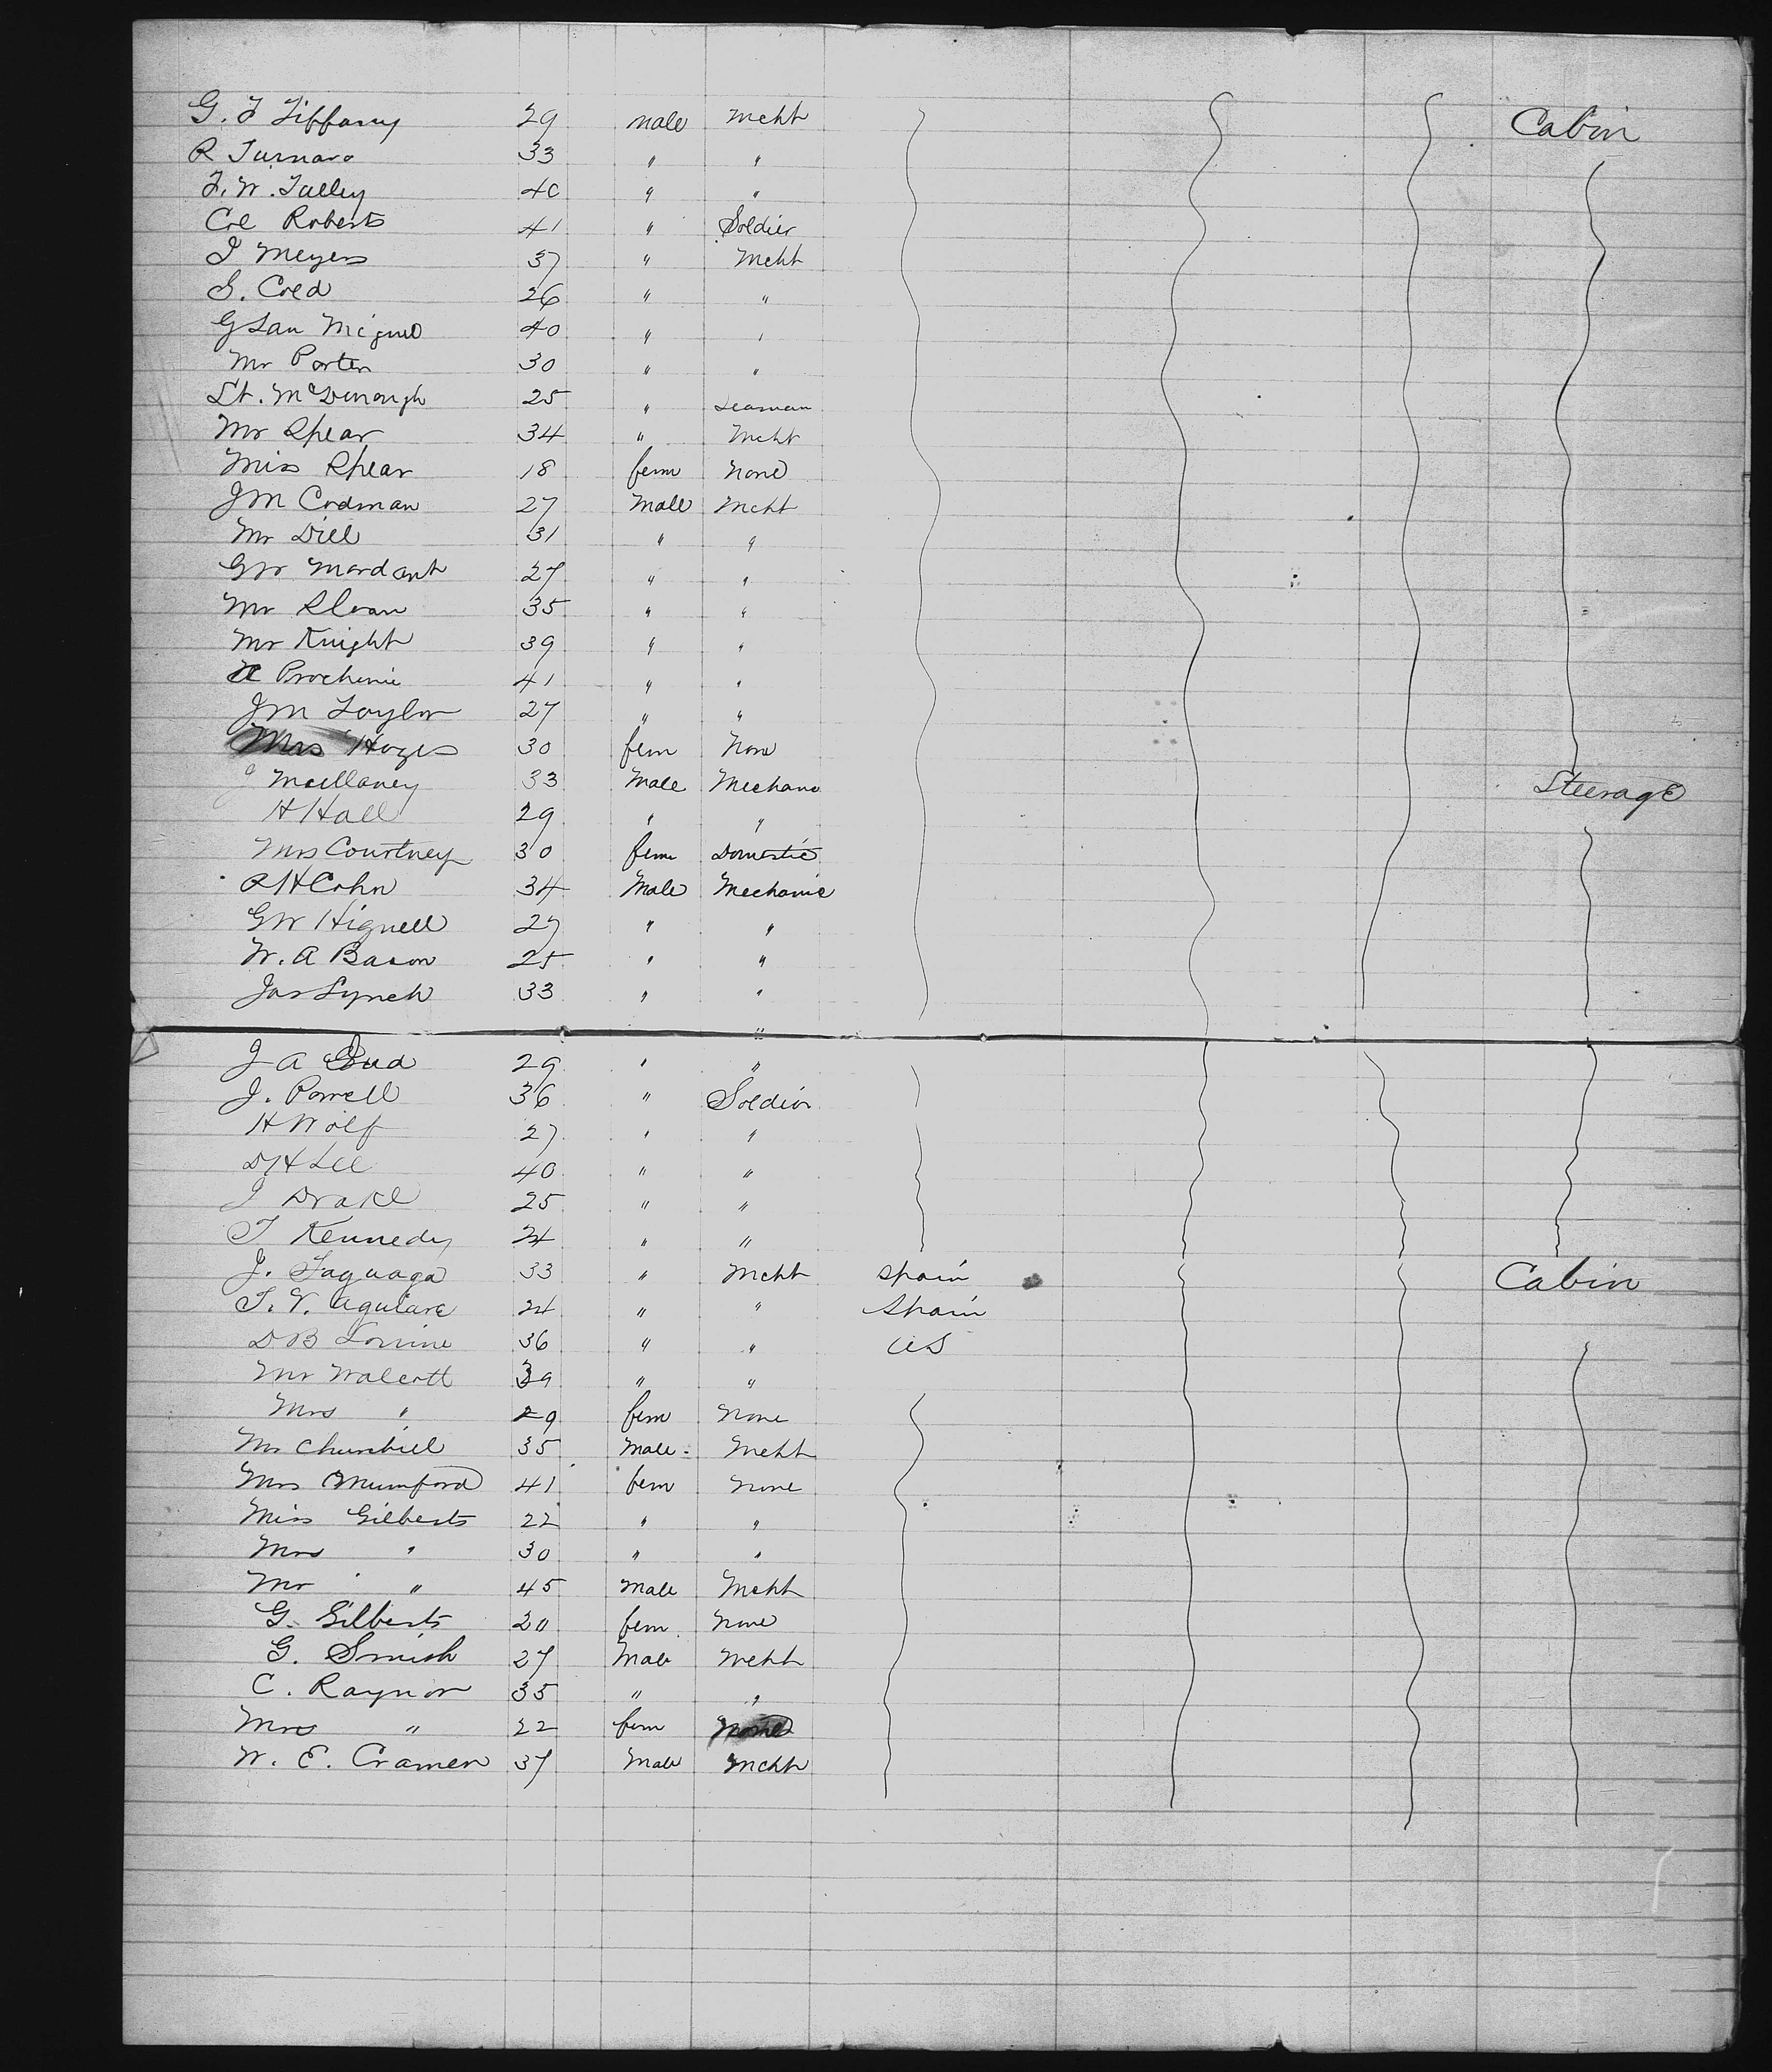 G. F Tiffany 29 male Mcht Cabin
R Turnaro 33 " "
F. W. Talley 40 " "
Col Roberts 41 " Soldier
I Meyers 37 " Mcht
S. Coed 26 " "
G San Miguel 40 " "
Mr Porter 30 " "
Lt. McDonough 25 " Seaman
Mr Spear 34 " Mcht
Miss Spear 18 fem None
J M Codman 27 Male Mcht
Mr Dill 31 " "
GW Mordant 27 " "
Mr Sloan 35 " "
Mr Knight 39 " "
Prochinie 41 " "
J M Taylor 27 " "
Mrs Hozes 30 fem None
J Mullaney 33 Male Mechanc Steerage
H Hall 29 " "
Mrs Courtney 30 fem Domestic
R H Cohn 34 Male Mechanic
GW Hignell 27 " "
W. A Bacon 25 " "
Jas Lynch 33 " "
"
J A 29 " "
J. Powell 36 " Soldier
H Wolf 27 " "
D H Lee 40 " "
J Drake 25 " "
T Kennedy 24 " "
J. Faguaga 33 " Mcht Spain Cabin
T. V. Aguiare 24 " " Spain
D B Lorrine 36 " " US
Mr Walcott 39 " "
Mrs " 29 fem None
Mr Churchill 35 Male Mcht
Mrs Mumford 41 fem None
Miss Gilberts 22 " "
Mrs " 30 " "
Mr " 45 Male Mcht
G. Gilberts 20 fem None
G. Smish 27 Male Mcht
C. Raynor 35 " "
Mrs " 22 fem None
W. E. Cramer 37 Male Mcht